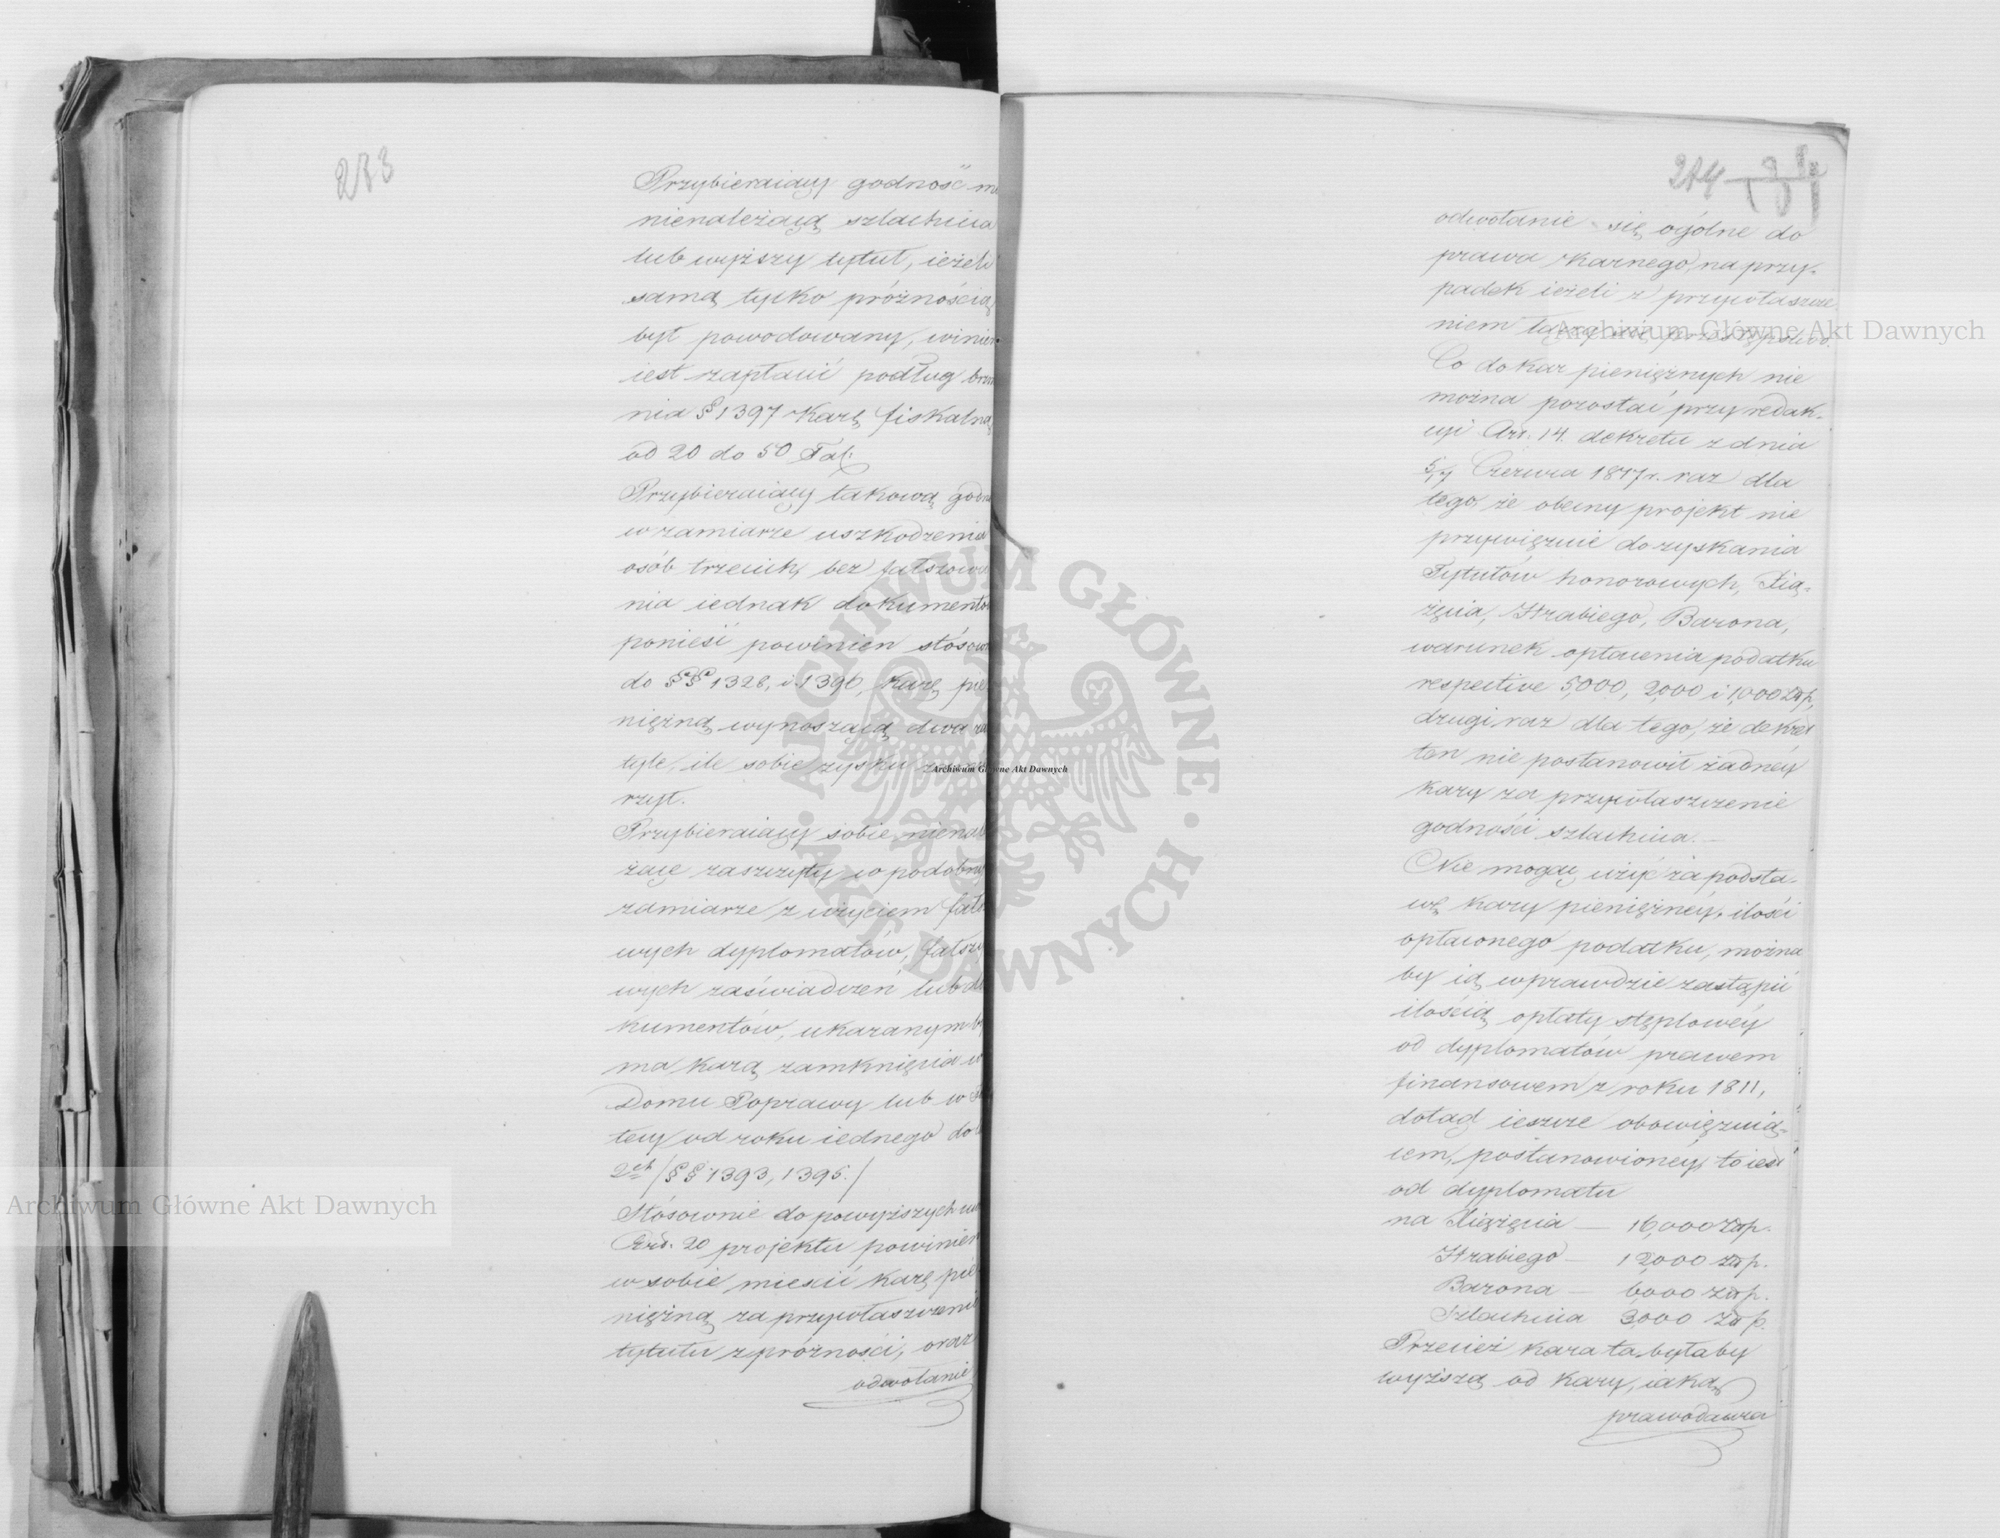 233
Przybieraiący godność m
nienależącą szlachcica
lub wyższy tytuł, ieżeli
samą tylko próżnością
był powodowany, winien
iest zapłacić podług brzm
nia § 1397 Karę fiskalną
od 20 do 50 Tal.
Przybieraiący takową godn
w zamiarze uszkodzenia
osób trzecich, bez fałszowa
nia iednak dokumentów
ponieść powinien stósown
do §§ 1328, i 1390, karę pie
niężną wynoszącą dwa ra
tyle, ile sobie zysku
rzył.
Przybieraiący sobie nienal
żące zaszczyty w podobny
zamiarze z użyciem fałs
wych dyplomatów, fałszy
wych zaświadczeń lub do
kumentów, ukaranym by
ma karą zamknięcia w
Domu Poprawy lub w
tecy od roku iednego do
2ch /§§ 1393, 1395./
Stósownie do powyższych
Art. 20 projektu powinien
w sobie mieścić karę pie
niężną za przywłaszczenie
tytułu z próżności, oraz
odwołanie
274
odwołanie się ogólne do
prawa karnego, na przy-
padek ieżeli z przywłaszcze
niem łączy się przestępstwo.
Co do kar pieniężnych nie
można pozostać przy redak-
cyi Art. 14. dekretu z dnia
5/7 Czerwca 1817 r. raz dla
tego, że obecny projekt nie
przywięzuie do zyskania
Tytułów honorowych, Xią-
żęcia, Hrabiego, Barona,
warunek opłacenia podatku
respective 5,000, 2,000 i 1,000 Złp,
drugi raz dla tego, że dekret
ten nie postanowił żadney
kary za przywłaszczenie
godności szlachcica. —
Nie mogąc użyć za podsta-
wę kary pieniężney, ilości
opłaconego podatku, można
by ią wprawdzie zastąpić
ilością opłaty stęplowéy
od dyplomatów prawem
finansowem z roku 1811,
dotąd ieszcze obowięzuią-
cem, postanowioney, to iest
od dyplomatu
na Xiężęcia — 16,000 złp.
Hrabiego — 12,000 złp.
Barona — 6000 złp.
Szlachcica 3,000 złp.
Przecież kara ta byłaby
wyższą od kary, iaką
prawodawca
Archiwum Główne Akt Dawnych
Archiwum Główne Akt Dawnych
Archiwum Główne Akt Dawnych
ARCHIWUM GŁÓWNE · AKT DAWNYCH ·